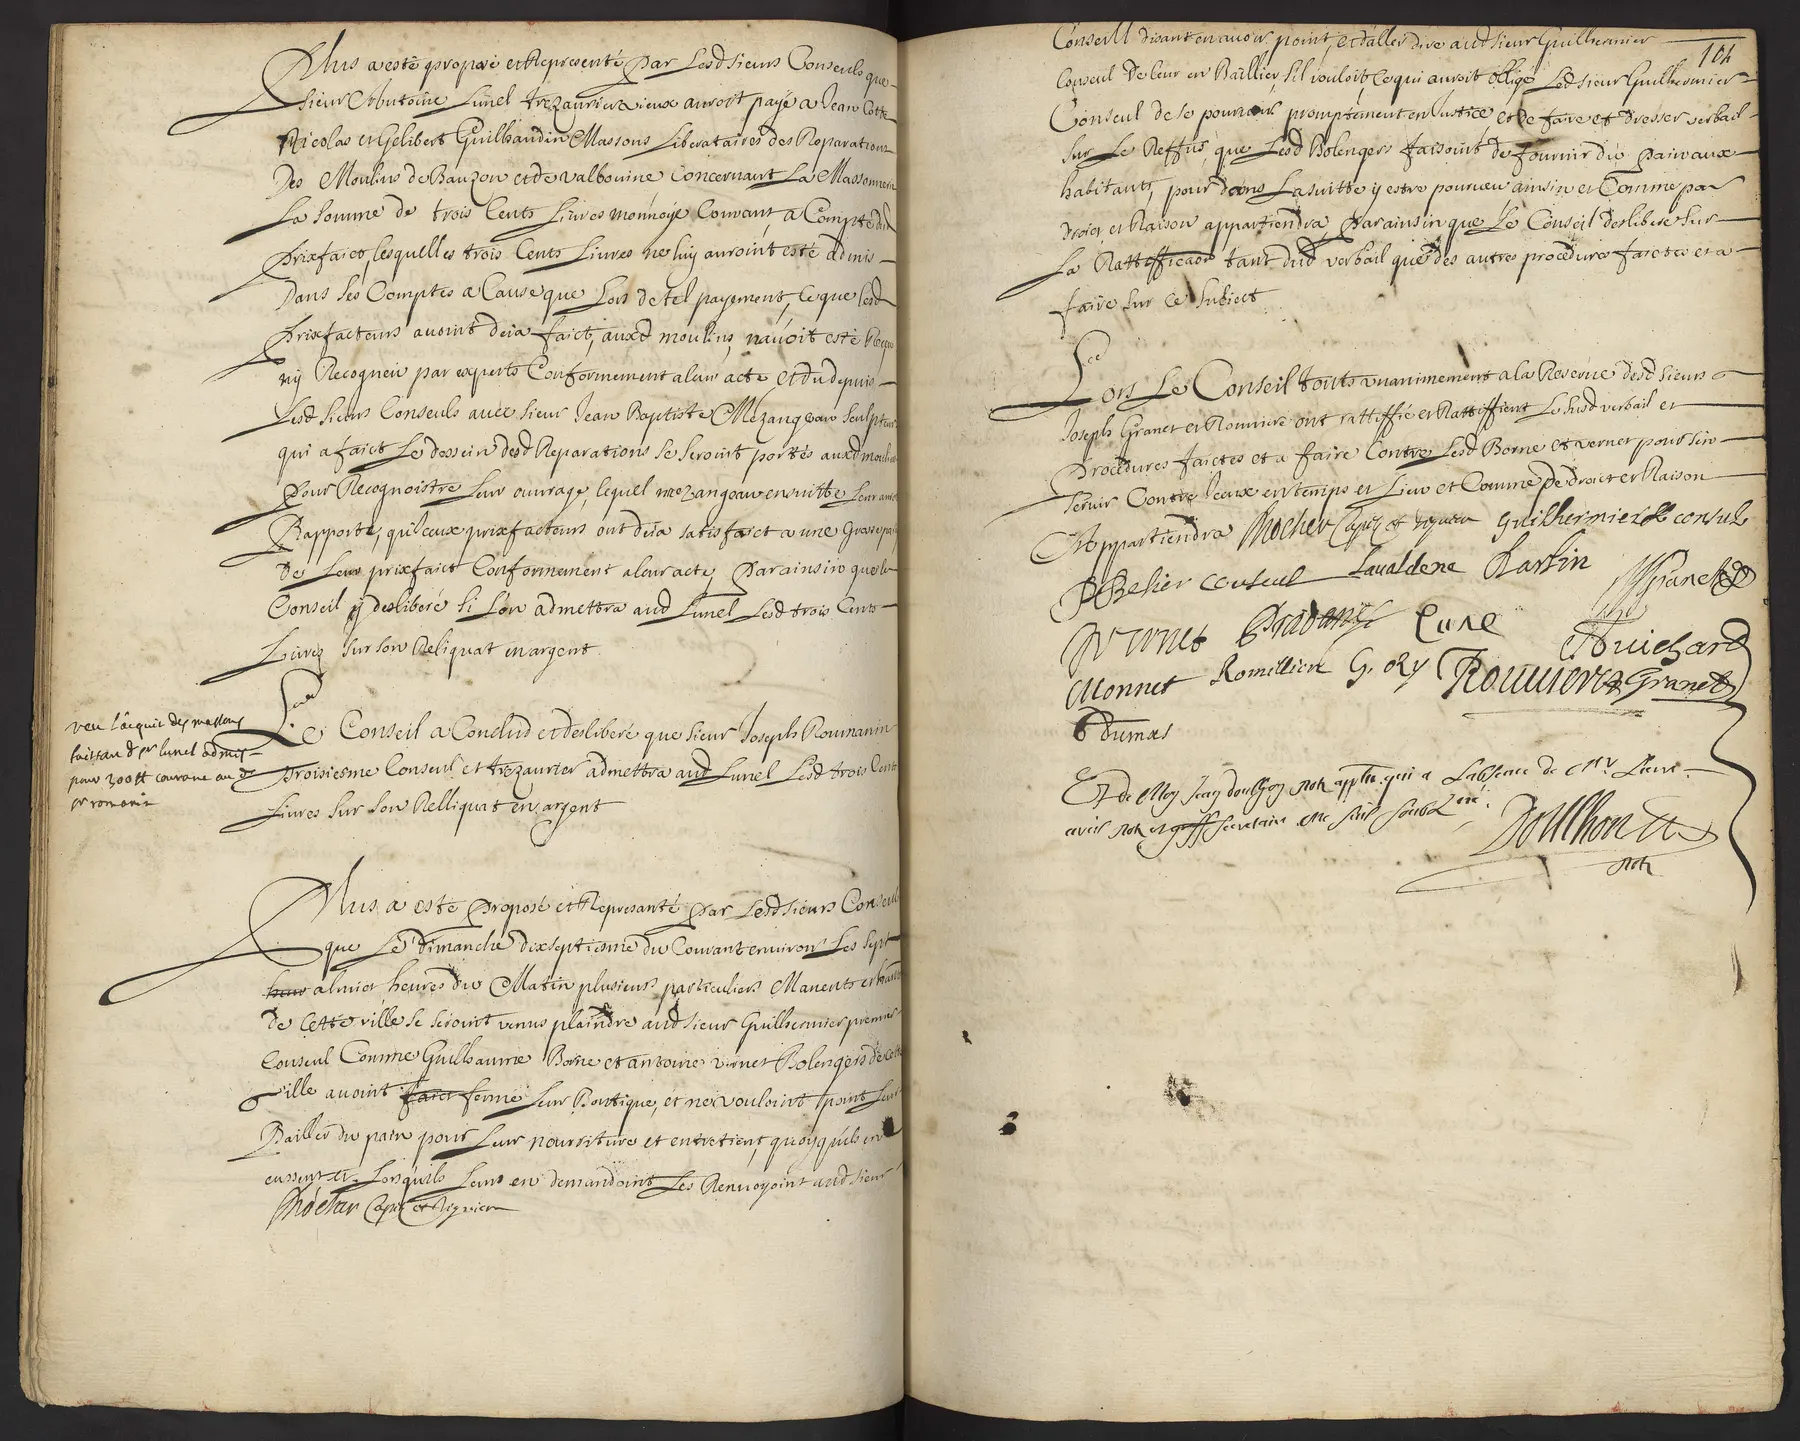 Plus a esté proposé et Representé par Lesd sieurs Conseuls que
sieur Anthoine Lunel trezaurier vieux auroit payé a Jean Cotte
Nicolas et Gelibert Guilhaudin Massons Liberataires des Reparations
Des Moulins de Bauzon et de valbouine Concernant La Massonnerie
La somme de trois Cents Livres monnoye Courant a Compte dud
Prixfaict, lesquelles trois Cents Livres ne luy auroint esté admis
Dans ses Comptes a Cause que Lors de tel payement, Ce que lesd
Prixfacteurs avoint deja faict, auxd moulins, n'avoit esté
ny Recogneu par experts Conformement a leur acte, et du depuis
Lesd sieurs Conseuls avec sieur Jean Baptiste Mezangeau sculpteur
qui a faict Le dessein desd Reparations se seroint portés auxd moulins
Pour Recognoistre Leur ouvrage, lequel mezangeau ensuitte Leur auroit
Rapporté, qu'iceux prixfacteurs ont deja satisfaict a une Grosse partie
de Leur prixfaict Conformement a leur acte, Parainsin que le
Conseil y desliberé si Lon admettra aud Lunel Lesd trois Cents
Livres sur son Reliquat en argent.
Veu l'acquit des massons
sr lunel admis
pour 300 tt courant au d
sr romanin
Le Conseil a Conclud et desliberé que sieur Joseph Roumanin
Troisiesme Conseul et trezaurier admettra aud Lunel Lesd trois Cents
Livres sur son Relliquat en argent
Plus a esté Proposé et Representé Par Lesd sieurs Conseuls
que Le dimanche dixseptiesme du Courant environ Les sept
a huict heures du Matin plusieurs particuliers Manents et habitans
de Cette ville se seroint venus plaindre aud sieur Guilhermier premier
Conseul Comme Guilhaume Borne et antoine vernet Bolengers de Cette
ville avoint faict fermé Leur Boutique, et ne vouloint point Leur
Bailler du pain pour Leur nourriture et entretient, quoy qu'ils en
eussent et Lorsquils Leur en demandoint Les Renvoyoint aud sieur
Rhocher Cappe et Viguier
104
Conseul disant en avoir point, et d'aller dire aud sieur Guilhermier
Conseul De leur en Baillier, s'il vouloit, Ce qui auroit obligé Led sieur Guilhermier
Conseul de se pourvoir promptement en Justice et de faire et dresser verbail
sur Le Reffus, que Lesd Bolengers faisoint de fournir du pain aux
habitants, pour dans La suitte y estre pourveu ainsin et Comme par
droict et Raison appartiendra, Parainsin que Le Conseil deslibere sur
La Rattiffication tant dud verbail que des autres procedures faictes et a
faire sur ce subiect
Lors Le Conseil touts unanimement a la Reserve desd sieurs
Joseph Granet et Rouviere ont rattiffié et Rattiffient Le susd verbail et
Procedures faictes et a faire Contre Lesd Borne et vernet pour s'en
servir Contre Iceux en temps et Lieu et Comme De droit et Raison
Appartiendra Rhocher Cappe et viguier Guilhermier consul
Belier conseul Lavaldene Rastin Granet
Vernet Pradanes Cune Guichard
Monnet Romillieu G. Ory Rouviere Granet
Dumas
Et de Moy Jean doulhon notre apptlle qui a L'absence de Mr Pierre
avis notre et greff secretaire me suis soubzné.
Doulhon
notre